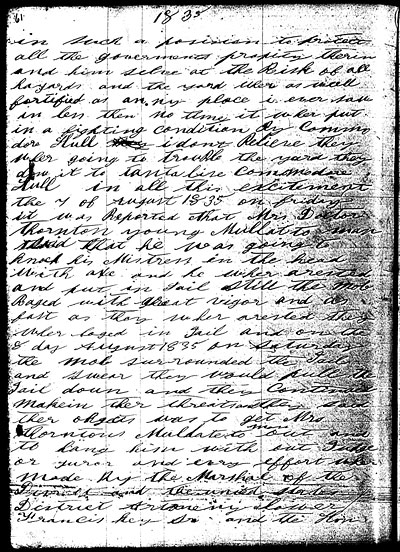 61 1835
in such a posinion to protect
all the goverments propity therein
and him selve at the Risk of all
hazards and the yard wher as well
fortified as an.ny place i ever saw
in less then no time it wher put
in a fighting condition By Commo
dore Hull i dont Believe they
wher going to trouble the yard they
don it to tantalise Commodore
Hull in all this excitement
the 7 of august 1835 on friday
it was Reported that Mrs Doctor
thornton young Mullatto man
said that he was going to
knock his Mistress in the head
With axe and he wher arested
and put in Jail Still the Mob
Raged with great vigor and as
fast as they wher arested they
wher loged in Jail and on the
8 day August 1835 on Saturday
the Mob surrounded the Jail
and swear they would pull the
Jail down and they Continued
Makein ther threats and said
ther object was to get Mrs
thorntons Mulatto man out and
to hang him with out Judge
or juror and evry effort wher
Made By the Marshal of the
District and the united states
District Artoneny lawer
Francis key Sr and the Hon